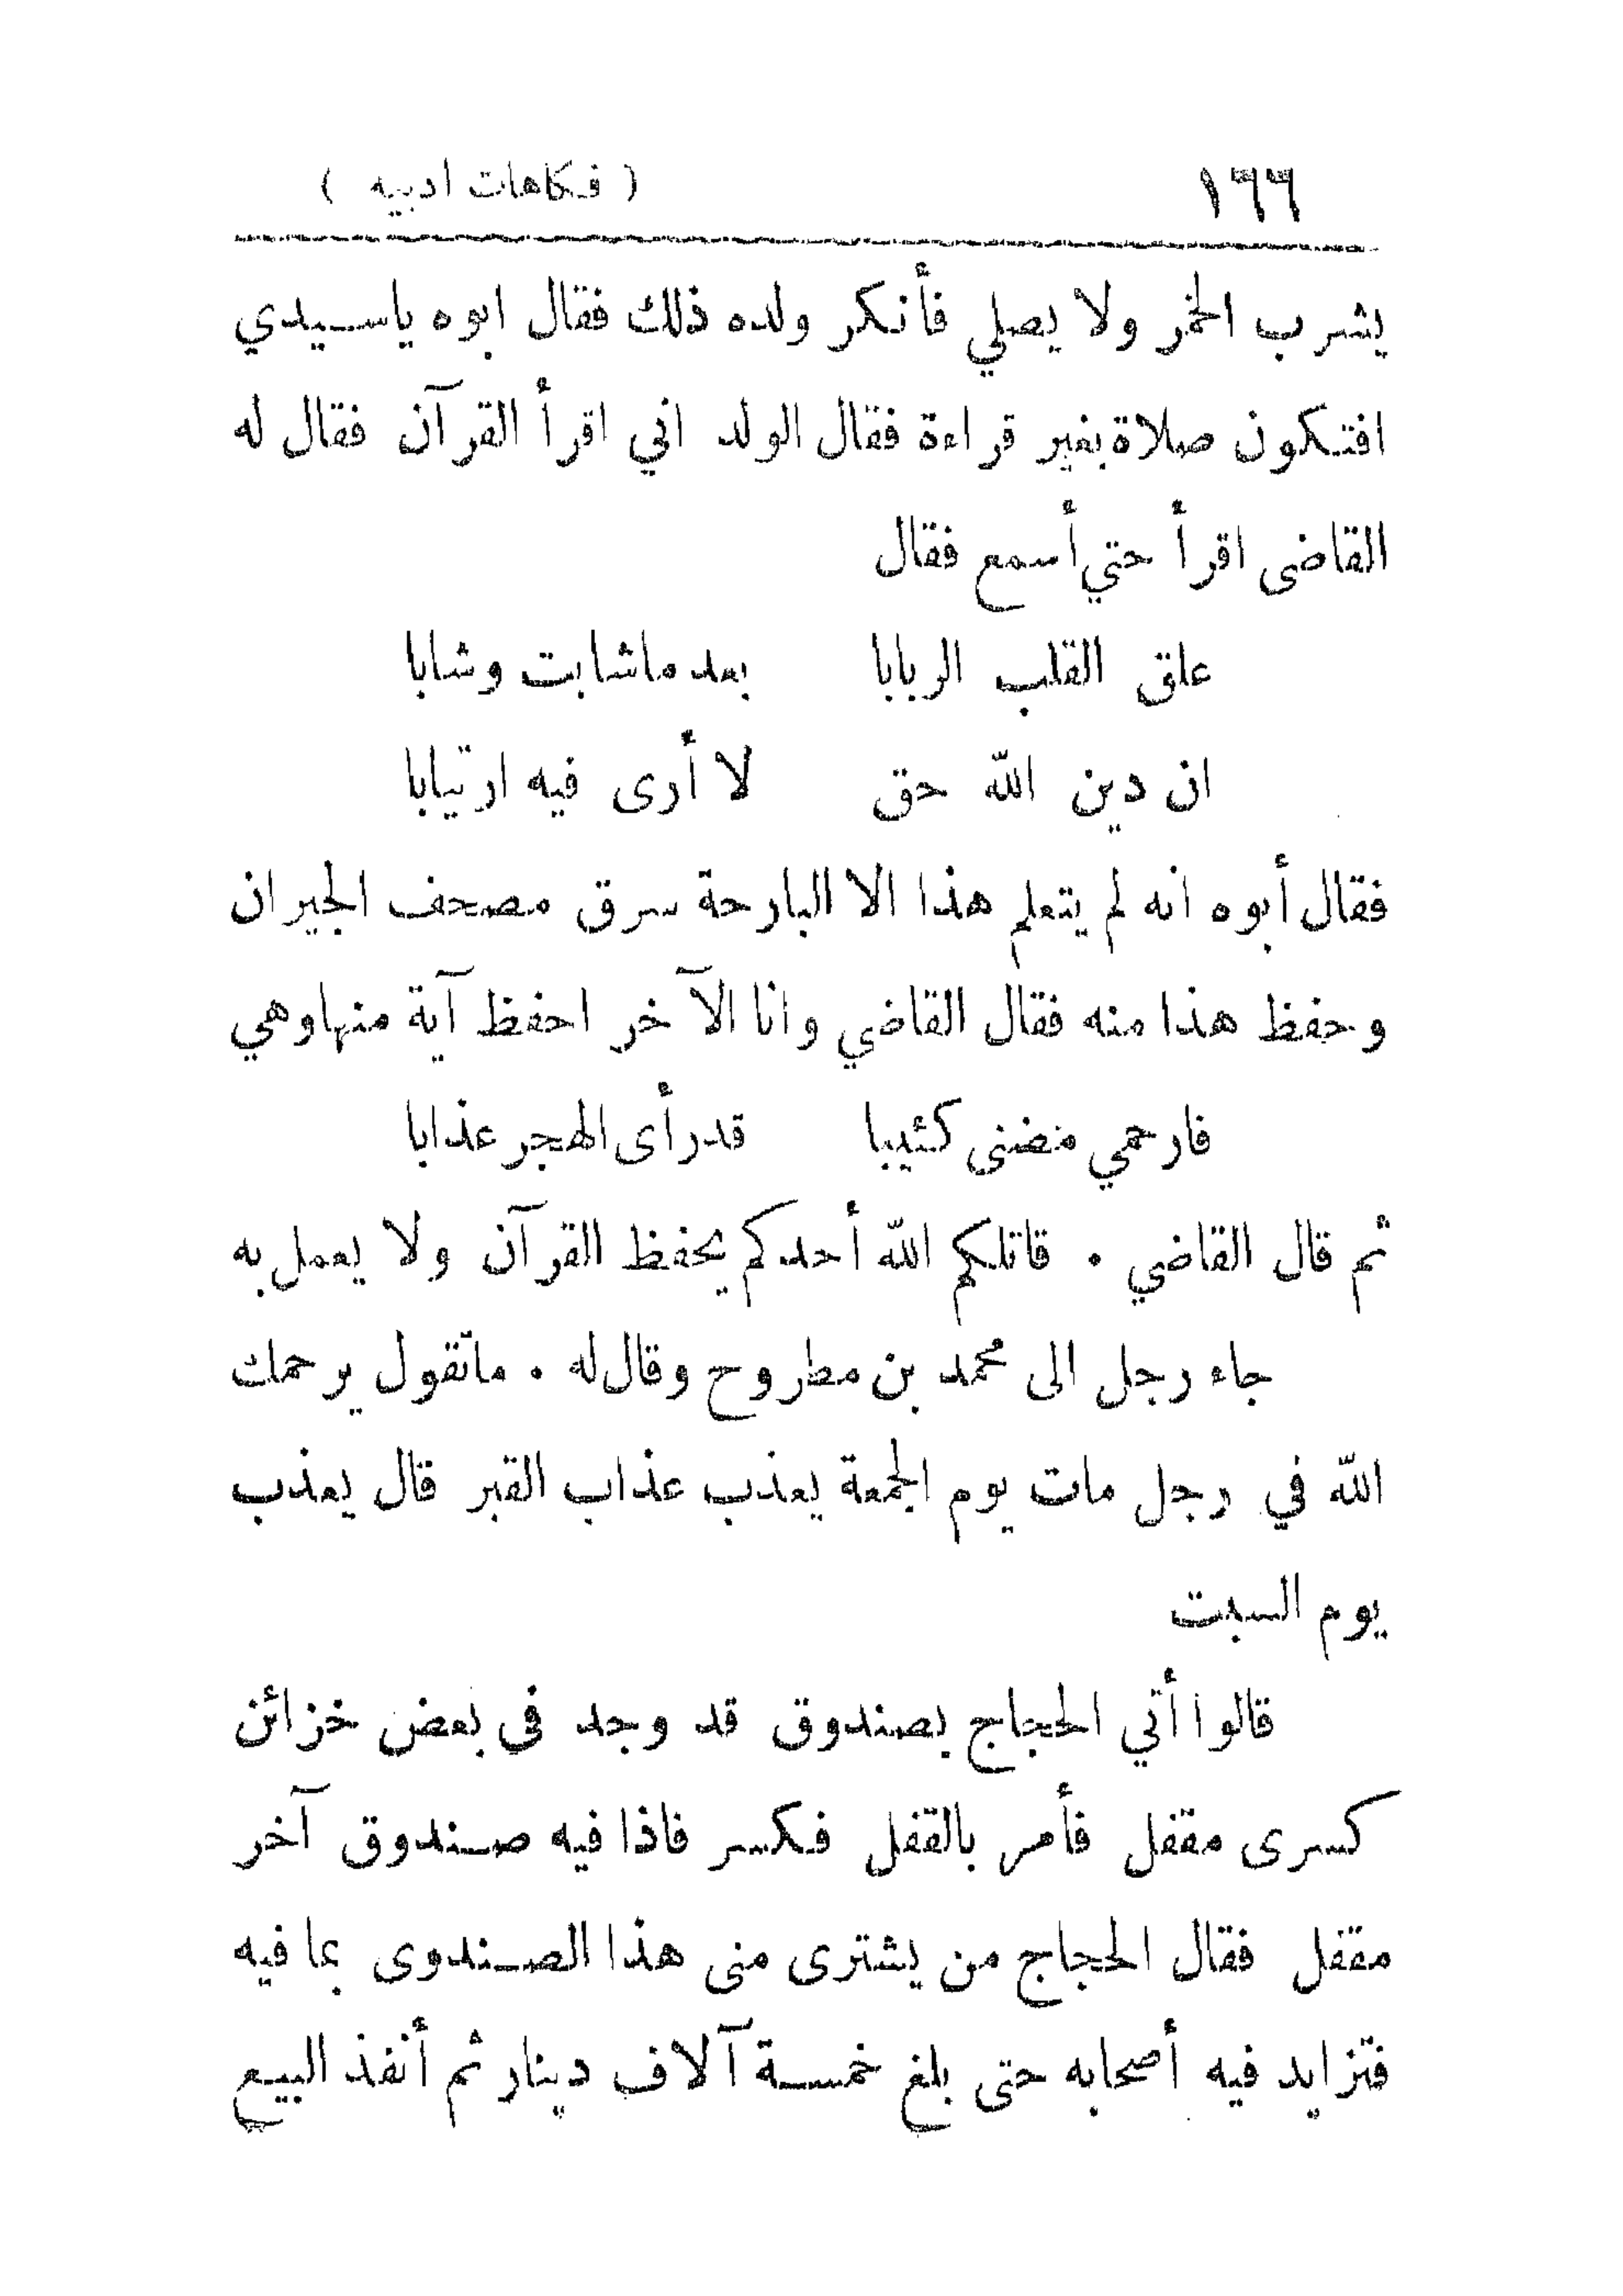 ١٦٦ ( فكاهات ادبيه )
يشرب الخمر ولا يصلي فأنكر ولده ذلك فقال ابوه ياسيدي
افتكون صلاة بغير قراءة فقال الولد اني اقرأ القرآن فقال له
القاضى اقرأ حتي أسمع فقال
علق القلب الربابا بعد ماشابت وشابا
ان دين الله حق لا أرى فيه ارتيابا
فقال أبوه انه لم يتعلم هذا الا البارحة سرق مصحف الجيران
وحفظ هذا منه فقال القاضي وانا الآخر احفظ آية منها وهي
فارحمي مضنى كئيبا قد رأى الهجر عذابا
ثم قال القاضي . قاتلكم الله أحدكم يحفظ القرآن ولا يعمل به
جاء رجل الى محمد بن مطروح وقال له . ماتقول يرحمك
الله في رجل مات يوم الجمعة يعذب عذاب القبر قال يعذب
يوم السبت
قالوا أتي الحجاج بصندوق قد وجد فى بعض خزائن
كسرى مقفل فأمر بالقفل فكسر فاذا فيه صندوق آخر
مقفل فقال الحجاج من يشترى منى هذا الصندوى بما فيه
فتزايد فيه أصحابه حتى بلغ خمسة آلاف دينار ثم أنفذ البيع